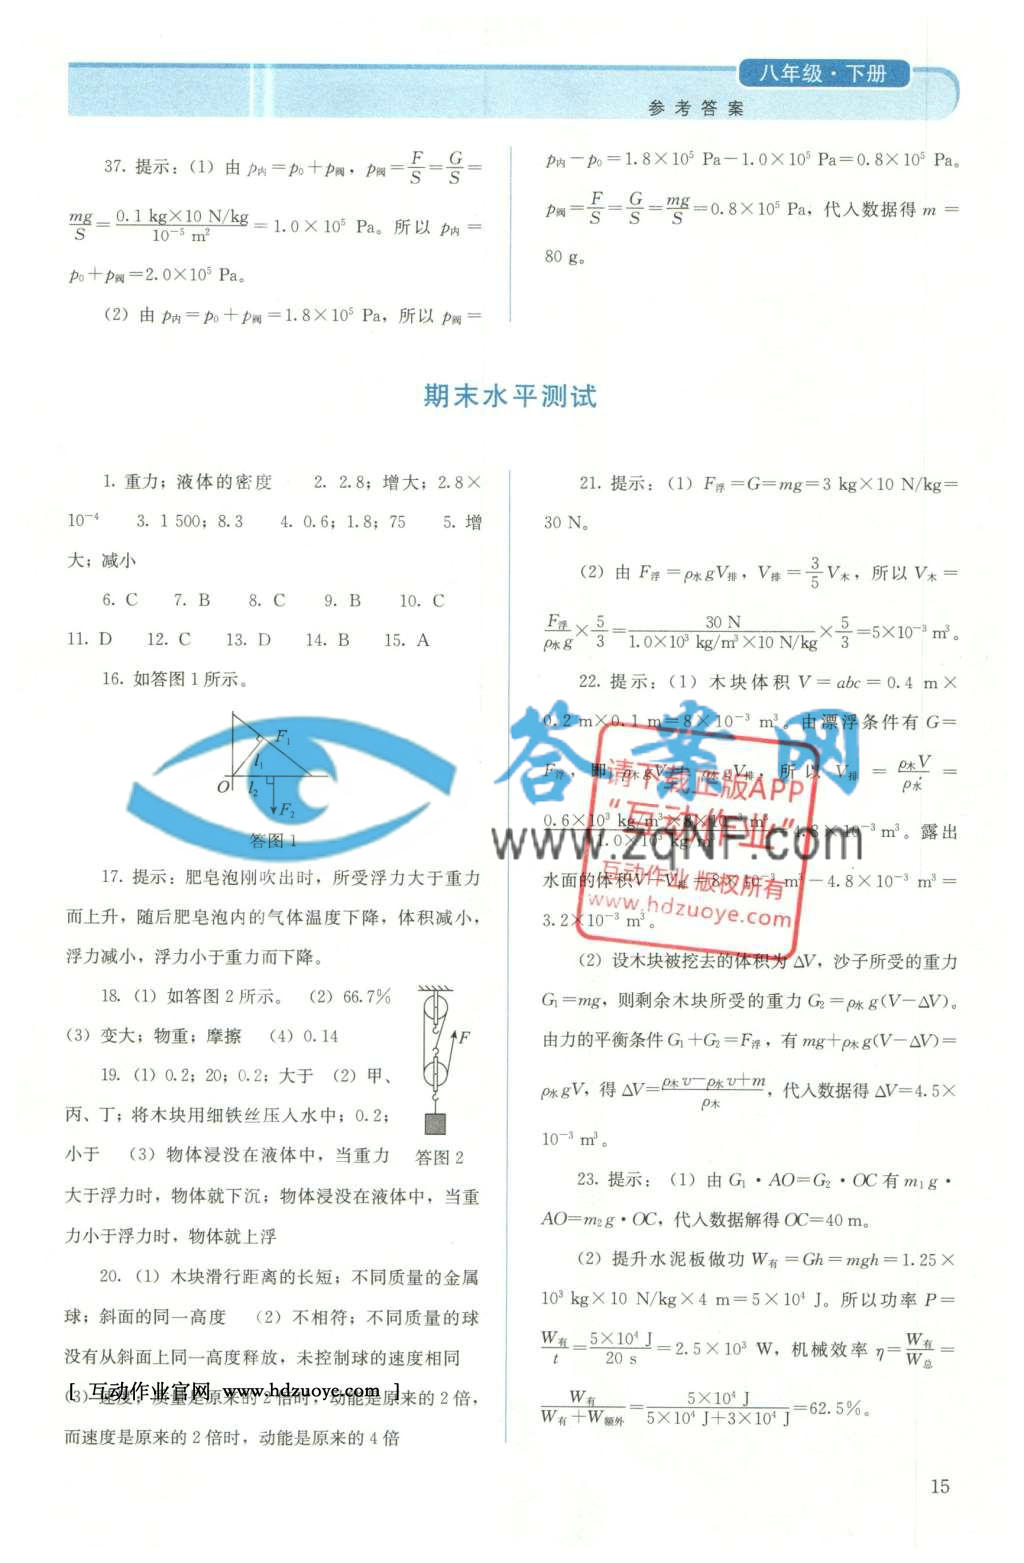 八年级·下册
参考答案
37. 提示：(1) 由 p内=p0+p阀，p阀=F/S=G/S=
mg/S=0.1 kg×10 N/kg/10⁻⁵ m²=1.0×10⁵ Pa。所以 p内=
p0+p阀=2.0×10⁵ Pa。
(2) 由 p内=p0+p阀=1.8×10⁵ Pa，所以 p阀=
p内-p0=1.8×10⁵ Pa-1.0×10⁵ Pa=0.8×10⁵ Pa。
p阀=F/S=G/S=mg/S=0.8×10⁵ Pa，代入数据得 m=
80 g。
期末水平测试
1. 重力；液体的密度 2. 2.8；增大；2.8×
10⁻⁴ 3. 1 500；8.3 4. 0.6；1.8；75 5. 增
大；减小
6. C 7. B 8. C 9. B 10. C
11. D 12. C 13. D 14. B 15. A
16. 如答图1所示。
F₁
l₁
O l₂
F₂
答图1
17. 提示：肥皂泡刚吹出时，所受浮力大于重力
而上升，随后肥皂泡内的气体温度下降，体积减小，
浮力减小，浮力小于重力而下降。
18. (1) 如答图2所示。 (2) 66.7%
(3) 变大；物重；摩擦 (4) 0.14
F
19. (1) 0.2；20；0.2；大于 (2) 甲、
丙、丁；将木块用细铁丝压入水中；0.2；
小于 (3) 物体浸没在液体中，当重力
答图2
大于浮力时，物体就下沉；物体浸没在液体中，当重
力小于浮力时，物体就上浮
20. (1) 木块滑行距离的长短；不同质量的金属
球；斜面的同一高度 (2) 不相符；不同质量的球
没有从斜面上同一高度释放，未控制球的速度相同
(3) 速度；质量是原来的2倍时，动能是原来的2倍，
[ 互动作业官网 www.hdzuoye.com ]
而速度是原来的2倍时，动能是原来的4倍
21. 提示：(1) F浮=G=mg=3 kg×10 N/kg=
30 N。
(2) 由 F浮=ρ水gV排，V排=3/5V木，所以 V木=
F浮/ρ水g×5/3=30 N/1.0×10³ kg/m³×10 N/kg×5/3=5×10⁻³ m³。
22. 提示：(1) 木块体积 V=abc=0.4 m×
0.2 m×0.1 m=8×10⁻³ m³。由漂浮条件有 G=
F浮，即 ρ木gV=ρ水gV排，所以 V排=ρ木V/ρ水=
0.6×10³ kg/m³×8×10⁻³ m³/1.0×10³ kg/m³=4.8×10⁻³ m³。露出
水面的体积V-V排=8×10⁻³ m³-4.8×10⁻³ m³=
3.2×10⁻³ m³。
答案网
www.zqNF.com
请下载正版APP
“互动作业”
互动作业 版权所有
www.hdzuoye.com
(2) 设木块被挖去的体积为 ΔV，沙子所受的重力
G₁=mg，则剩余木块所受的重力 G₂=ρ木g(V-ΔV)。
由力的平衡条件 G₁+G₂=F浮，有 mg+ρ木g(V-ΔV)=
ρ水gV，得 ΔV=ρ木v-ρ水v+m/ρ木，代入数据得 ΔV=4.5×
10⁻³ m³。
23. 提示：(1) 由 G₁·AO=G₂·OC 有 m₁g·
AO=m₂g·OC，代入数据解得 OC=40 m。
(2) 提升水泥板做功 W有=Gh=mgh=1.25×
10³ kg×10 N/kg×4 m=5×10⁴ J。所以功率 P=
W有/t=5×10⁴ J/20 s=2.5×10³ W，机械效率 η=W有/W总=
W有/W有+W额外=5×10⁴ J/5×10⁴ J+3×10⁴ J=62.5%。
15